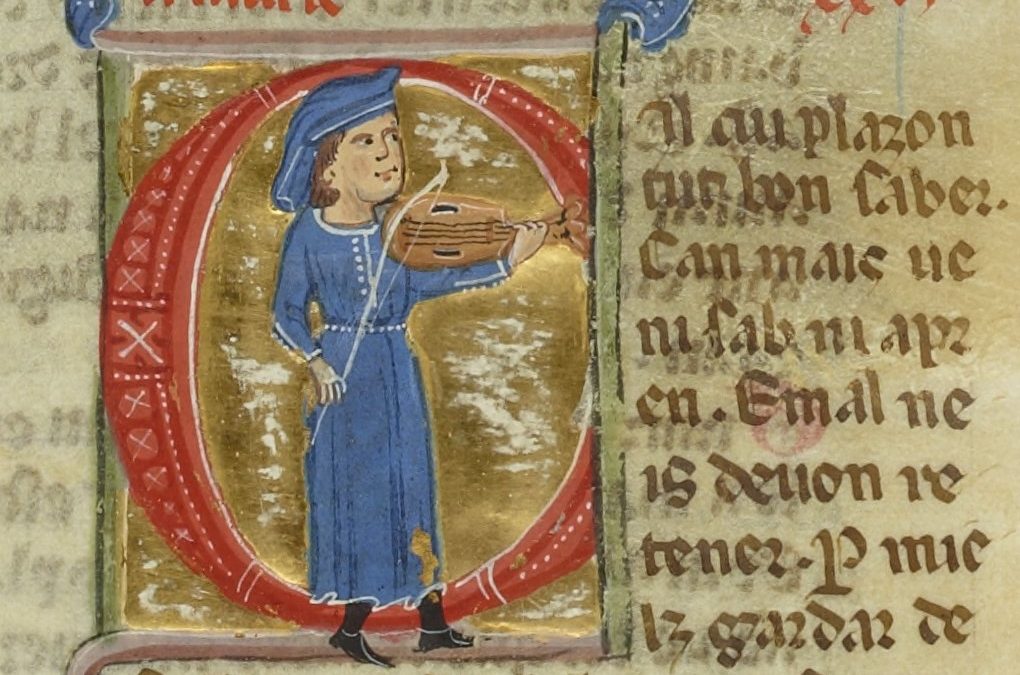 Al cui plazon
tut bon saber.
Can mais ue
ni sab ni apr
en. Emal ne
is deuon re
tener. P mie
lz gardar de